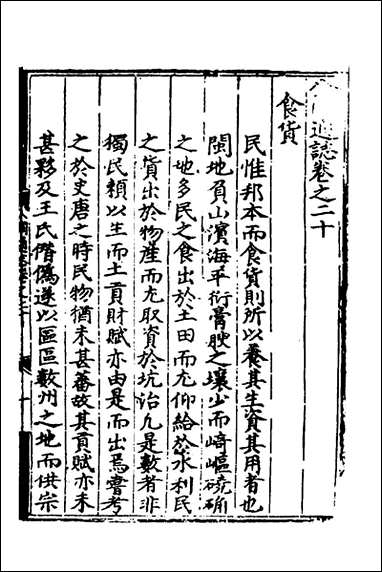 八閩通誌卷之二十
食貨
民惟邦本而食貨則所以養其生資其用者也
閩地負山濱海平衍膏腴之壤少而﨑嶇磽确
之地多民之食出於土田而尤仰給於水利民
之貨出於物產而尤取資於坑冶凡是數者非
獨民賴以生而土貢財賦亦由是而出焉嘗考
之於史唐之時民物猶未甚蕃故其貢賦亦未
甚夥及王氏僭僞遂以區區數州之地而供宗